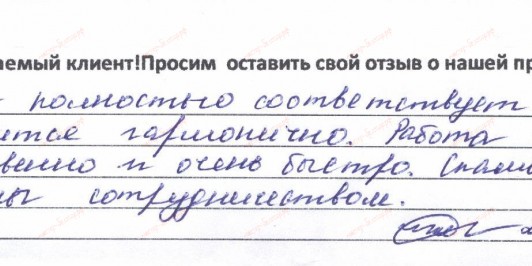 аемый клиент!Просим оставить свой отзыв о нашей пр
полностью соответствует
ится гармонично. Работа
венно и очень быстро. Спаси
ны сотрудничеством.